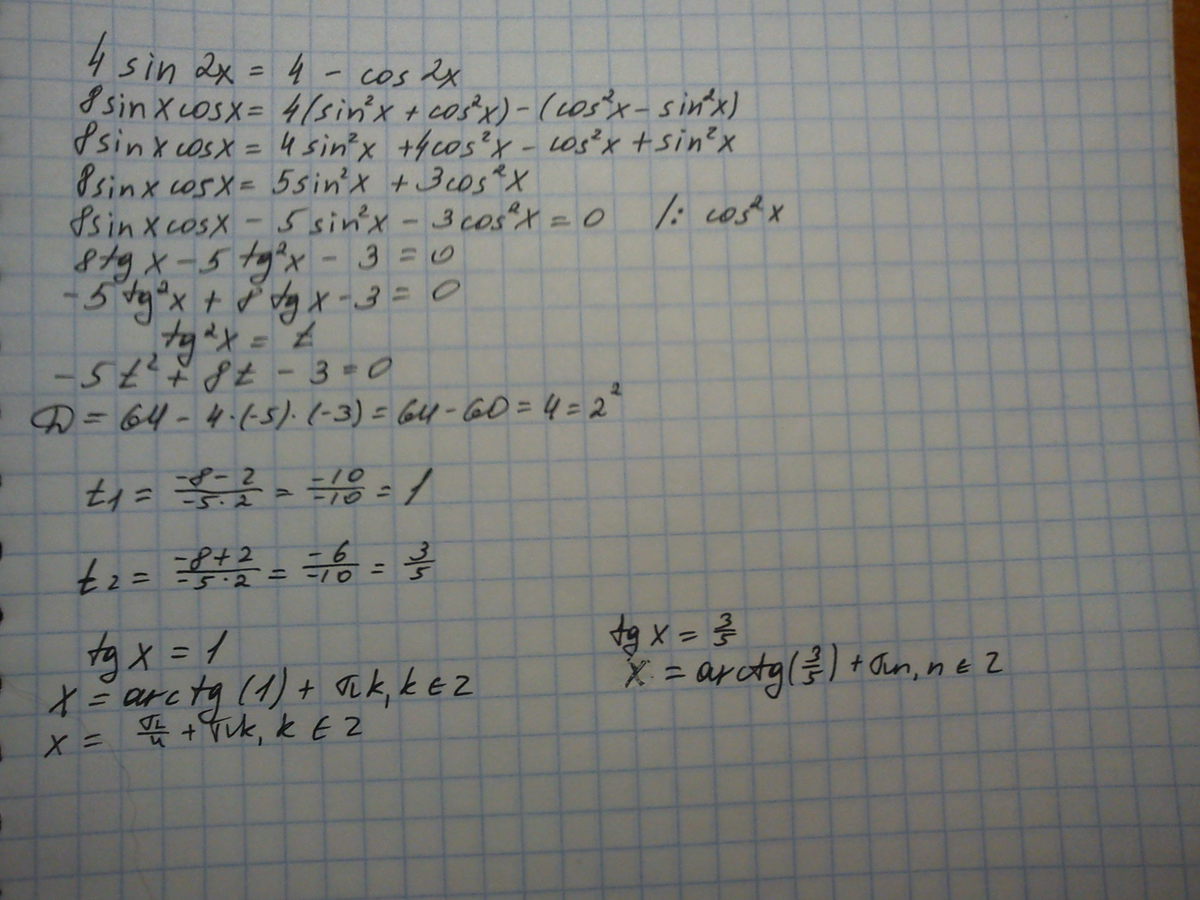 4 sin 2x = 4 - cos 2x
8sin x cos x = 4(sin²x + cos²x) - (cos²x - sin²x)
8sin x cos x = 4sin²x + 4cos²x - cos²x + sin²x
8sin x cos x = 5sin²x + 3cos²x
8sin x cos x - 5sin²x - 3cos²x = 0 /: cos²x
8tg x - 5tg²x - 3 = 0
-5tg²x + 8tg x - 3 = 0
tg²x = t
-5t² + 8t - 3 = 0
D = 64 - 4·(-5)·(-3) = 64 - 60 = 4 = 2²
t₁ = (-8-2)/(-5·2) = -10/-10 = 1
t₂ = (-8+2)/(-5·2) = -6/-10 = 3/5
tg x = 1
x = arctg(1) + πk, k ∈ Z
x = π/4 + πk, k ∈ Z
tg x = 3/5
x = arctg(3/5) + πn, n ∈ Z